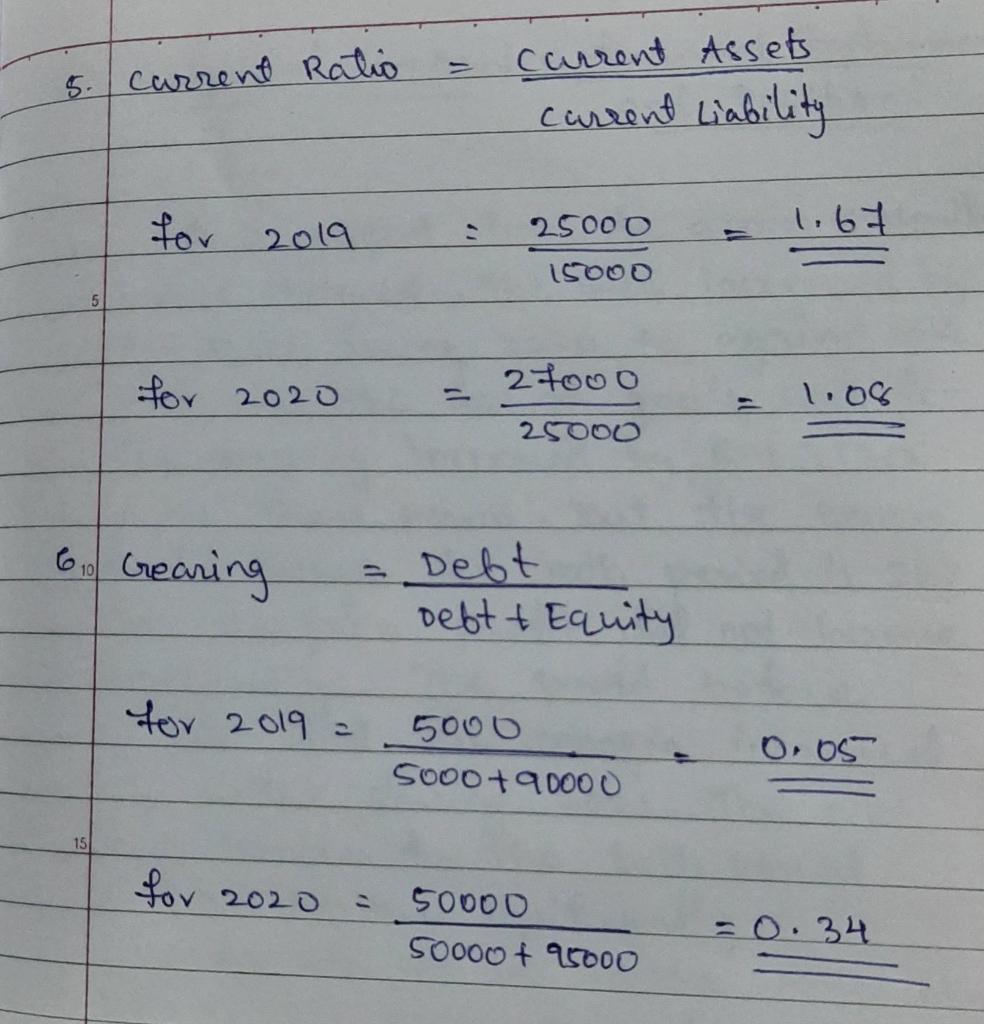 5. Current Ratio = Current Assets
Current Liability
for 2019 = 25000 = 1.67
15000
5
for 2020 = 27000 = 1.08
25000
6. 10 Gearing = Debt
Debt + Equity
for 2019 = 5000 = 0.05
5000+90000
15
for 2020 = 50000 = 0.34
50000+ 95000